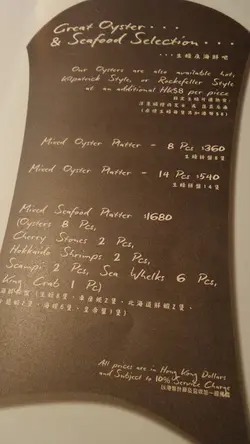 Great Oyster...
& Seafood Selection...
...生蠔及海鮮吧
Our Oysters are also available hot,
Kilpatrick Style, or Rockefeller Style
at an additional HK$8 per piece
Mixed Oyster Platter - 8 Pcs $360
生蠔拼盤8隻
Mixed Oyster Platter - 14 Pcs $540
生蠔拼盤14隻
Mixed Seafood Platter $1680
(Oysters 8 Pcs,
Cherry Stones 2 Pcs,
Hokkaido Shrimps 2 Pcs,
Scampi 2 Pcs, Sea Whelks 6 Pcs,
King Crab 1 Pc)
海鮮拼盤 (生蠔8隻, 2隻, 北海道鮮蝦2隻,
2隻, 海螺6隻, 皇帝蟹1隻)
All prices are in Hong Kong Dollars
and Subject to 10% Service Charge